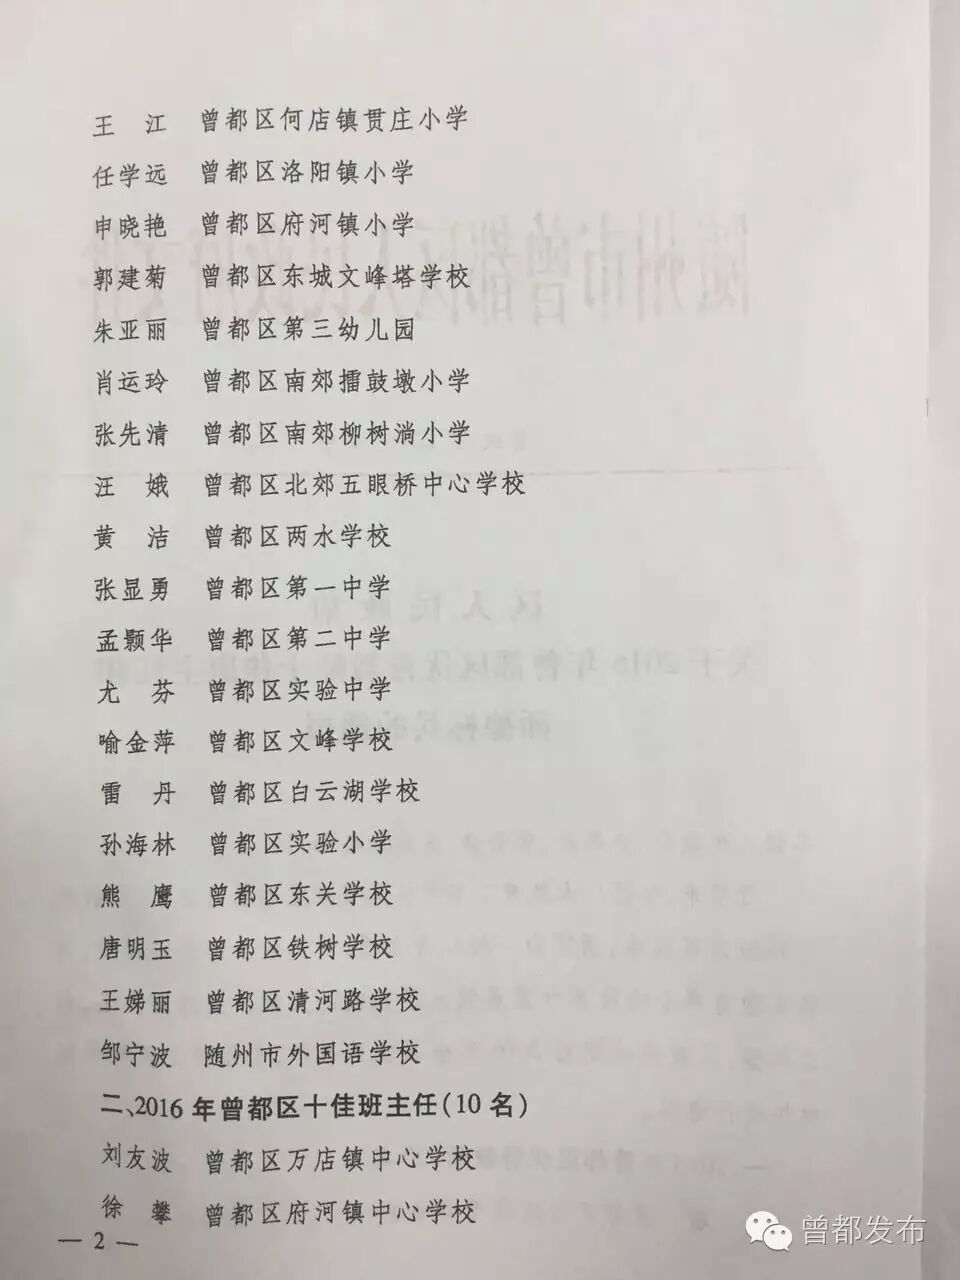 王 江 曾都区何店镇贯庄小学
任学远 曾都区洛阳镇小学
申晓艳 曾都区府河镇小学
郭建菊 曾都区东城文峰塔学校
朱亚丽 曾都区第三幼儿园
肖运玲 曾都区南郊擂鼓墩小学
张先清 曾都区南郊柳树淌小学
汪 娥 曾都区北郊五眼桥中心学校
黄 洁 曾都区两水学校
张显勇 曾都区第一中学
孟颢华 曾都区第二中学
尤 芬 曾都区实验中学
喻金萍 曾都区文峰学校
雷 丹 曾都区白云湖学校
孙海林 曾都区实验小学
熊 鹰 曾都区东关学校
唐明玉 曾都区铁树学校
王娣丽 曾都区清河路学校
邹宁波 随州市外国语学校
二、2016年曾都区十佳班主任(10名)
刘友波 曾都区万店镇中心学校
徐 攀 曾都区府河镇中心学校
— 2 —
曾都发布